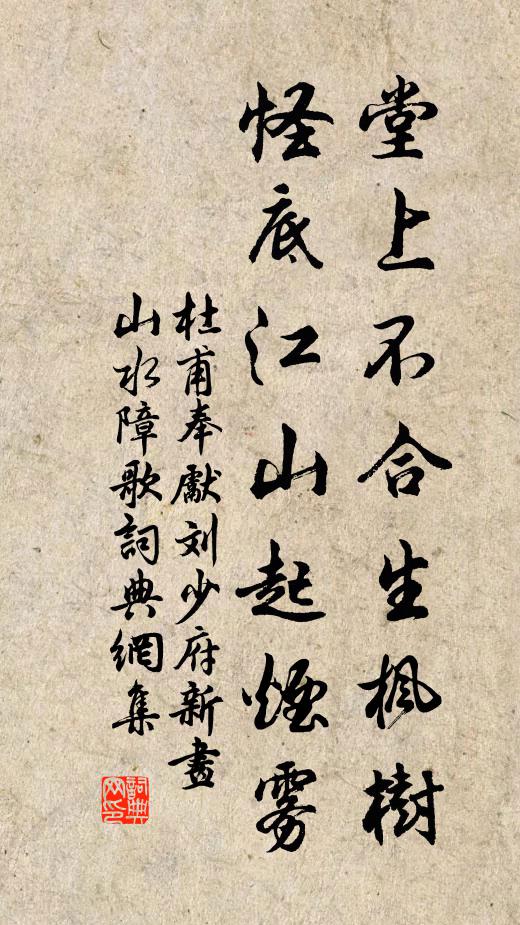 堂上不合生枫樹
怪底江山起煙雾
杜甫奉獻刘少府新畫
山水障歌詞典網集
詞典
网印